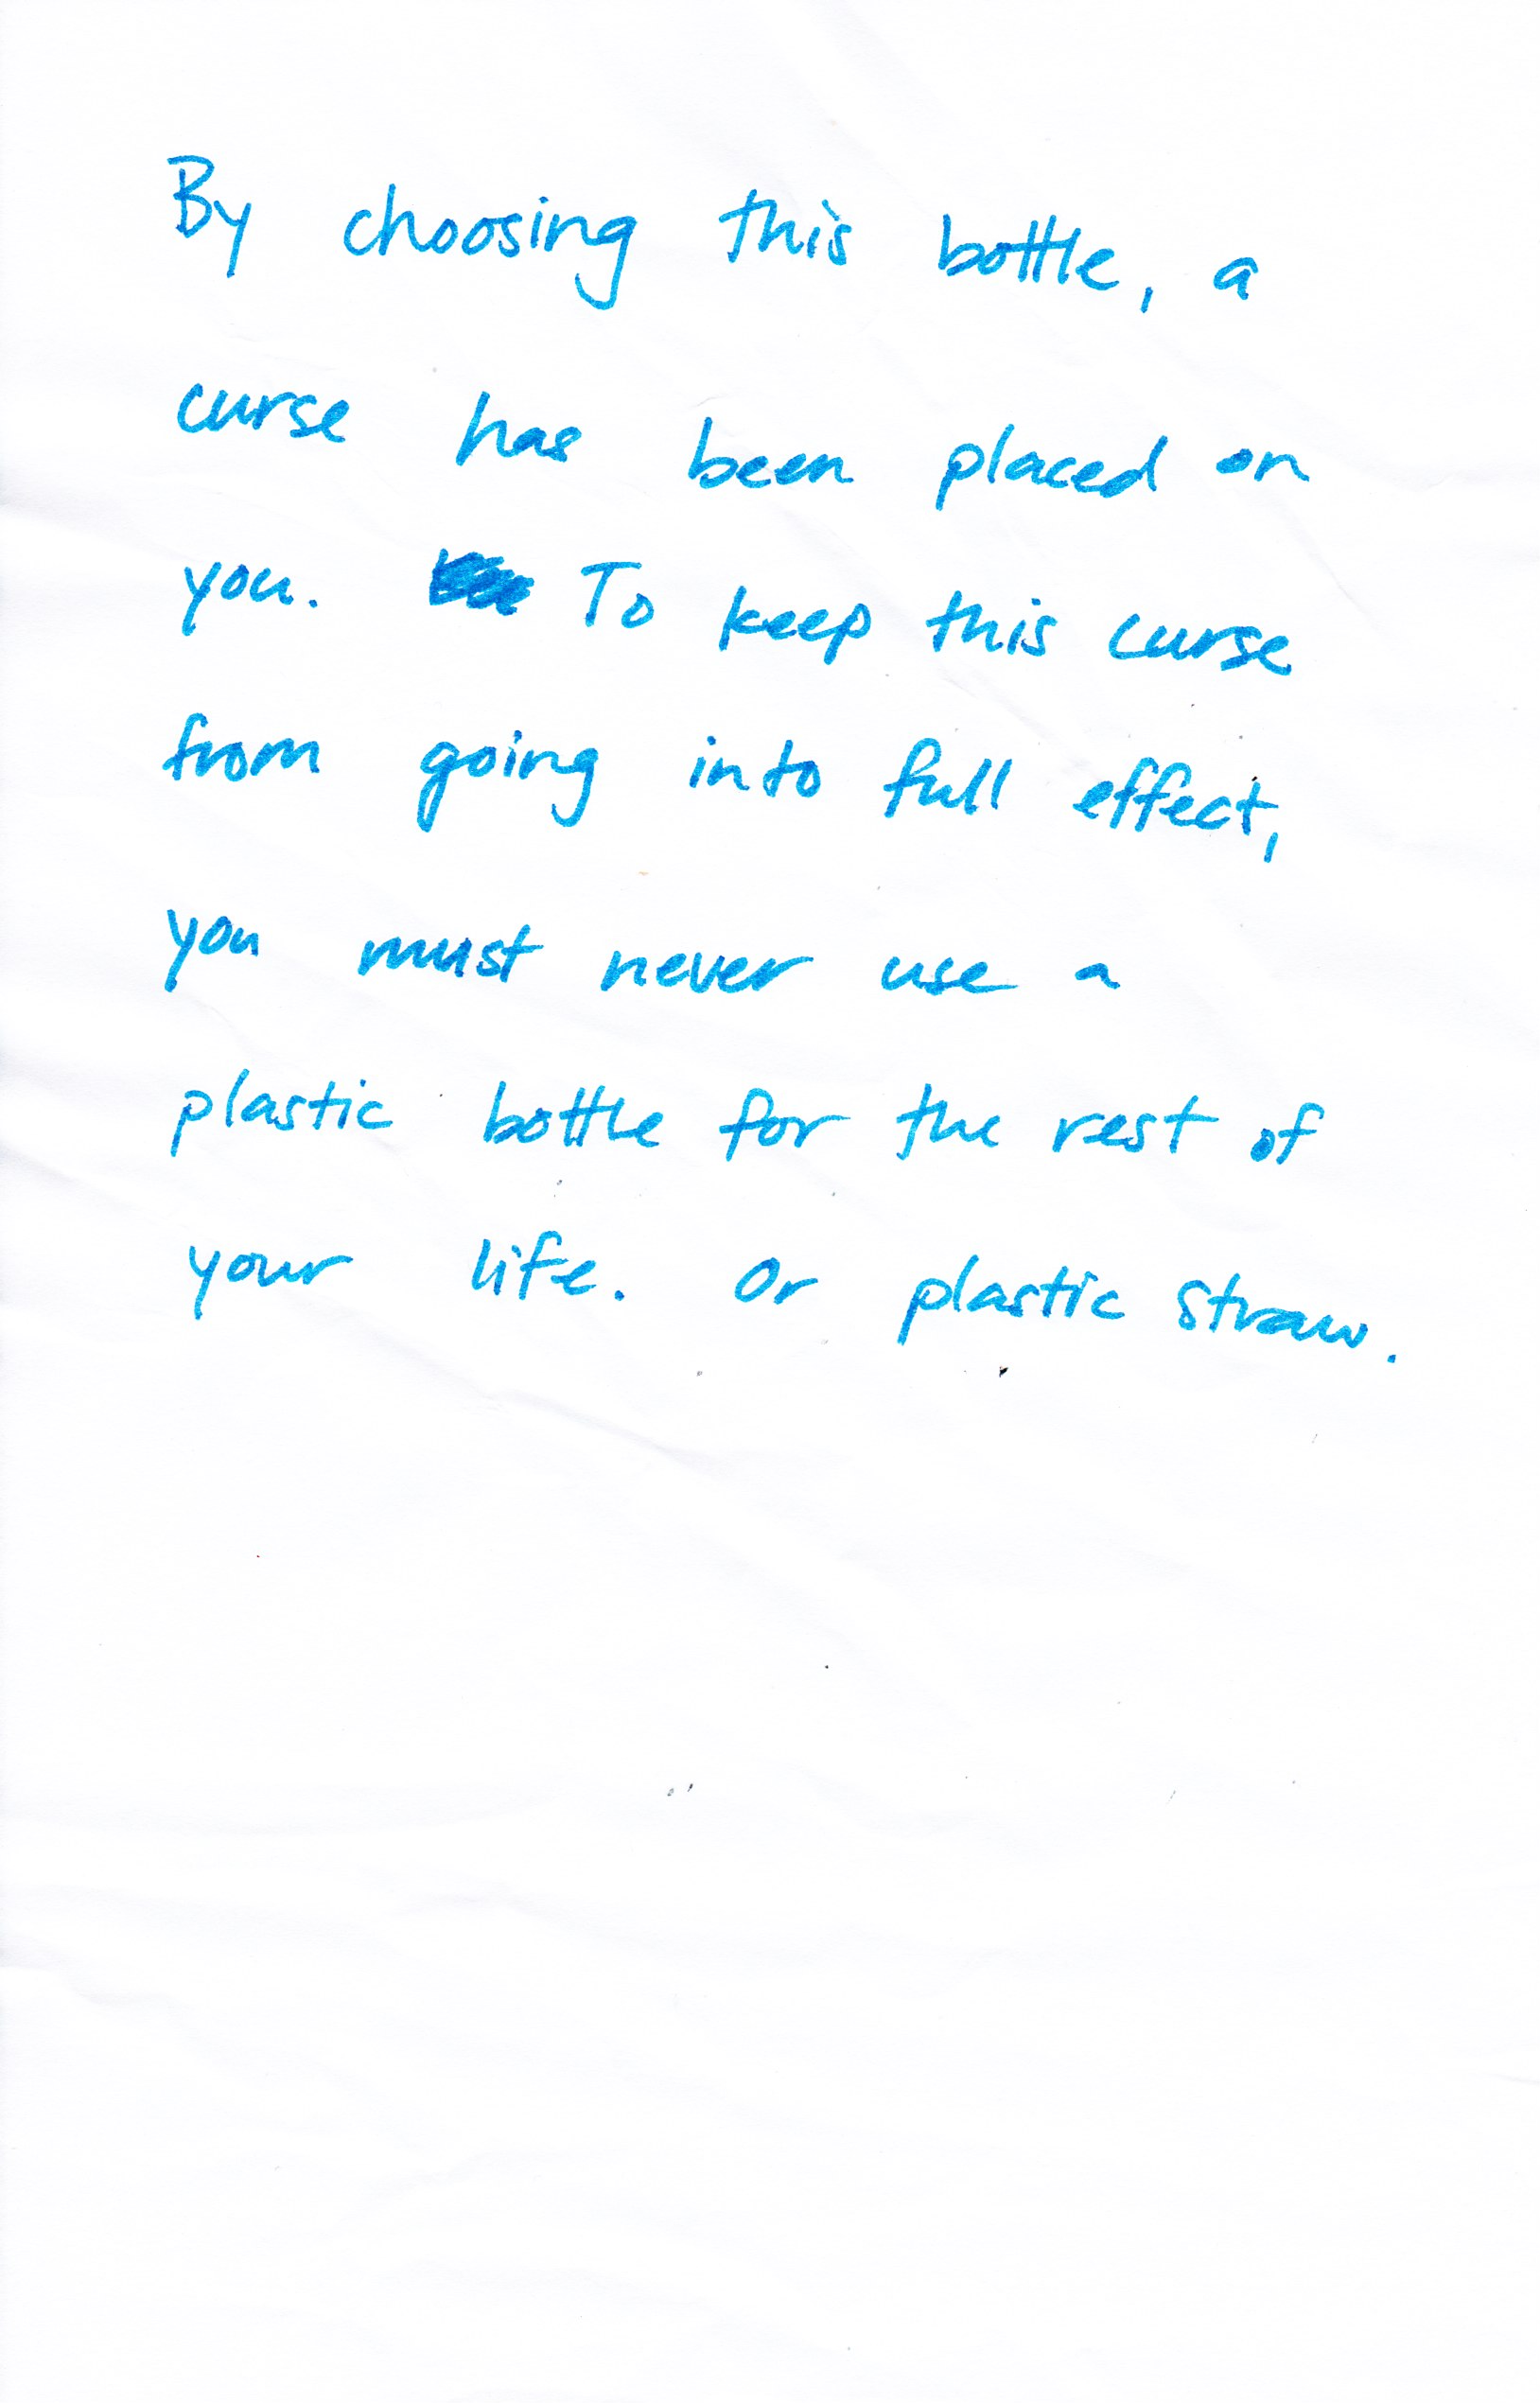 By choosing this bottle, a
curse has been placed on
you. To keep this curse
from going into full effect,
you must never use a
plastic bottle for the rest of
your life. Or plastic straw.